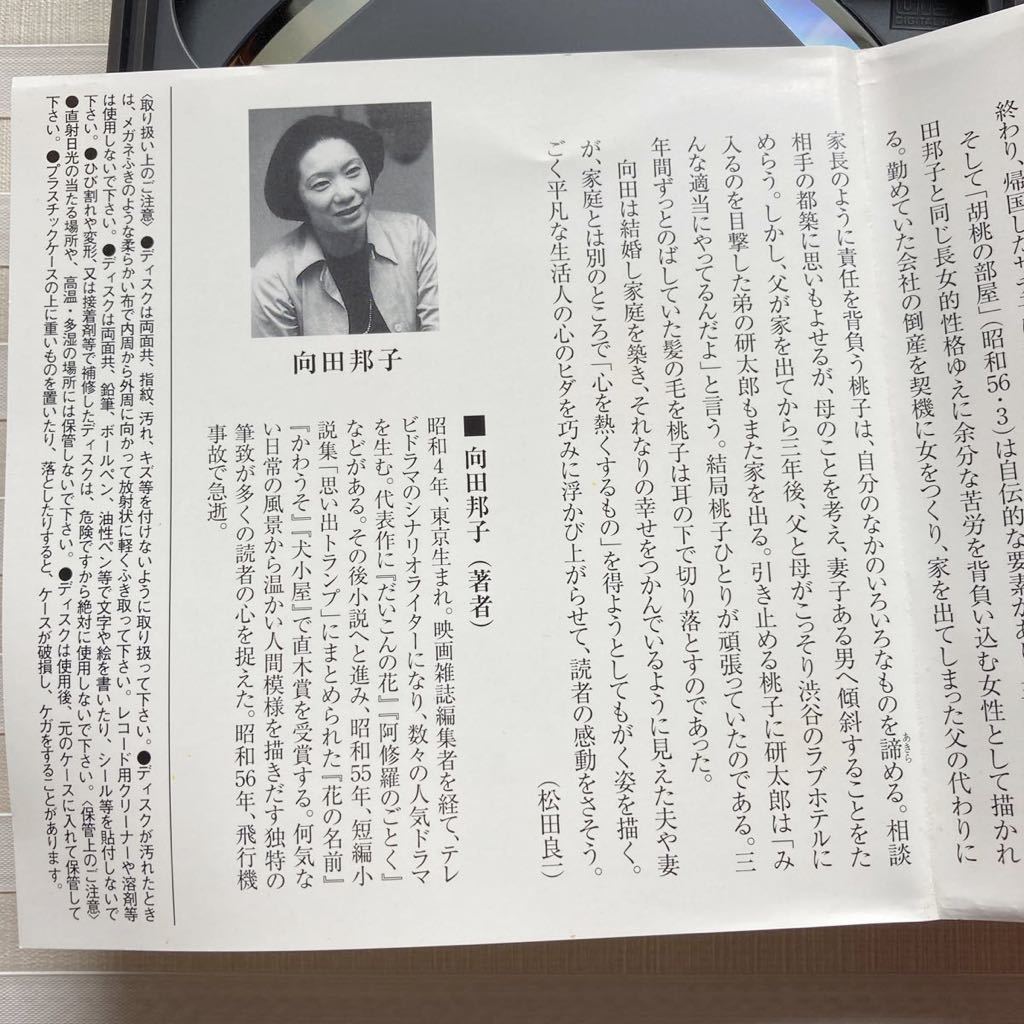 終わり、帰国した
そして「胡桃の部屋」(昭和56・3)は自伝的な要素があ
田邦子と同じ長女的性格ゆえに余分な苦労を背負い込む女性として描かれ
る。勤めていた会社の倒産を契機に女をつくり、家を出てしまった父の代わりに
家長のように責任を背負う桃子は、自分のなかのいろいろなものを諦める。相談
あきら
相手の都築に思いもよせるが、母のことを考え、妻子ある男へ傾斜することをた
めらう。しかし、父が家を出てから三年後、父と母がこっそり渋谷のラブホテルに
入るのを目撃した弟の研太郎もまた家を出る。引き止める桃子に研太郎は「み
んな適当にやってるんだよ」と言う。結局桃子ひとりが頑張っていたのである。三
年間ずっとのばしていた髪の毛を桃子は耳の下で切り落とすのであった。
向田は結婚し家庭を築き、それなりの幸せをつかんでいるように見えた夫や妻
が、家庭とは別のところで「心を熱くするもの」を得ようとしてもがく姿を描く。
ごく平凡な生活人の心のヒダを巧みに浮かび上がらせて、読者の感動をさそう。
(松田良一)
■向田邦子(著者)
昭和4年、東京生まれ。映画雑誌編集者を経て、テレ
ビドラマのシナリオライターになり、数々の人気ドラマ
を生む。代表作に『だいこんの花』『阿修羅のごとく』
などがある。その後小説へと進み、昭和55年、短編小
説集「思い出トランプ」にまとめられた『花の名前』
『かわうそ』『犬小屋』で直木賞を受賞する。何気な
い日常の風景から温かい人間模様を描きだす独特の
筆致が多くの読者の心を捉えた。昭和56年、飛行機
事故で急逝。
向田邦子
〈取り扱い上のご注意〉●ディスクは両面共、指紋、汚れ、キズ等を付けないように取り扱って下さい。●ディスクが汚れたとき
は、メガネふきのような柔らかい布で内周から外周に向かって放射状に軽くふき取って下さい。レコード用クリーナーや溶剤等
は使用しないで下さい。●ディスクは両面共、鉛筆、ボールペン、油性ペン等で文字や絵を書いたり、シール等を貼付しないで
下さい。●ひび割れや変形、又は接着剤等で補修したディスクは、危険ですから絶対に使用しないで下さい。〈保管上のご注意〉
●直射日光の当たる場所や、高温・多湿の場所には保管しないで下さい。●ディスクは使用後、元のケースに入れて保管して
下さい。●プラスチックケースの上に重いものを置いたり、落としたりすると、ケースが破損し、ケガをすることがあります。